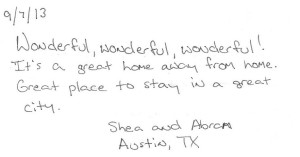 9/7/13
Wonderful, wonderful, wonderful!
It's a great home away from home.
Great place to stay in a great
city.
Shea and Abram
Austin, TX